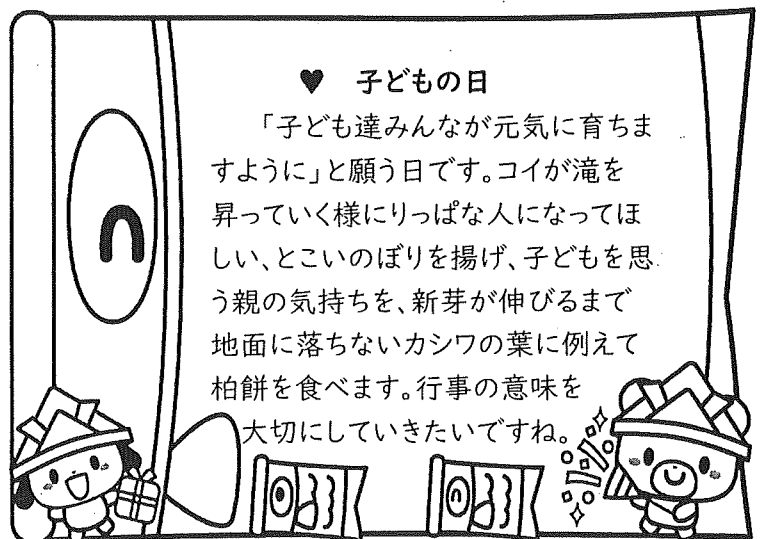 ♥ 子どもの日
「子ども達みんなが元気に育ちま
すように」と願う日です。コイが滝を
昇っていく様にりっぱな人になってほ
しい、とこいのぼりを揚げ、子どもを思
う親の気持ちを、新芽が伸びるまで
地面に落ちないカシワの葉に例えて
柏餅を食べます。行事の意味を
大切にしていきたいですね。